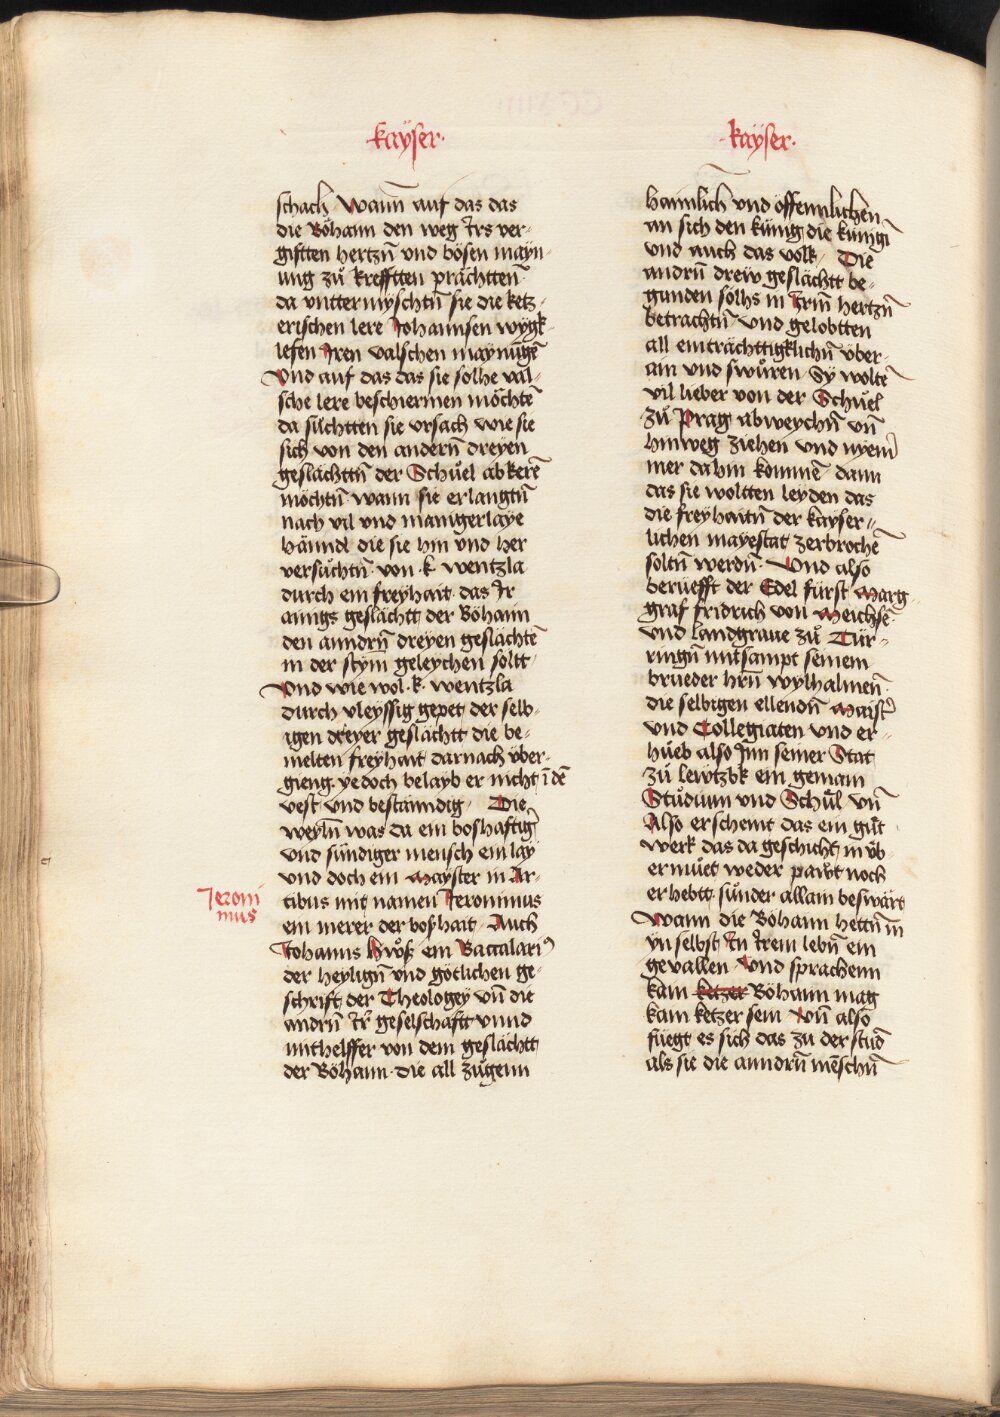 kayser·
schach Wann̄ auf das das
die Böhann den weg Irs ver-
gifften hertzn̄ vnd bösen mayn-
ung zů krefftten prächtten·
da vnttermyschtn̄ sie die ketz-
erischen lere Johannsen wygk-
lefen Iren valschen maynūgē
Vnd auf das das sie solhe val-
sche lere beschiermen möchtē
da süchtten sie vrsach wie sie
sich von den andern̄ dreyen
geslächttn̄ der Schůel abkerē
möchtn̄ wann sie erlangtn̄
nach vil vnd manigerlaye
hänndl die sie hin vnd her
versüchtn̄· von ·k· wentzla
durch ein freyhait das Ir
ainigs geslächtt der Böhann
den anndrn̄ dreyen geslächtē
in der stym geleychen soltt·
Vnd wie wol ·k· wentzla
durch vleyssig gepet der selb-
igen dreyer geslächtt die be-
melten freyhait darnach vber-
gieng· yedoch belayb er nicht ī dē
vest vnd bestänndig· Die
weyln̄ was da ein boshafftig̉
vnd sündiger mensch ein lay
vnd doch ein Mayster in Ar-
tibus mit namen Jeronimus
ein merer der boßhait· Auch
Johanns Hwőß ein Baccalari⁹
der heylign̄ vnd götlichen ge-
schrift der Theologey vn̄ die
andrn̄ Ir̄ geselschafft vnnd
mithelffer von dem geslächtt
der Böhann· die all zůgenn
Jeroni
mus
kayser·
haimlich vnd öffennlichen
an sich den künig die künigī
vnd auch das volk· Die
andrn̄ drew geslächtt be-
gunden solhs in Irm̄ hertzn̄
betrachtn̄ vnd gelobtten
all einträchttigklichn̄ vber-
ain vnd swůren Sy woltē
vil lieber von der Schůel
zů Prag abweychn̄ vn̄
hinweg ziehen vnd nyem̄
mer dahin kommē dann
das sie woltten leyden das
die freyhaitn̄ der kayser-
lichen mayestat zerbrochē
soltn̄ werdn̄· Vnd also
berüefft der Edel fürst Marg-
graf fridrich von Meichsē
vnd landgraue zů Tür-
ringn̄ mitsampt seinem
brueder hrn̄ wylhalmen̄
die selbigen ellendn̄ Maist̉
vnd Collegiaten vnd er-
hůeb also Inn seiner Stat
zů lewtzbk ein gemain
Stůdium vnd Schůl vn̄
Also erscheint das ein gůt
werk das da geschicht in vb-
ermůet weder pawt noch
erhebtt· sůnder allain beswärt
Wann die Böhann hettn̄ in̄
yn selbst In Irem lebn̄ ein
gevallen· Vnd sprachenn
kain ketzer Böhann mag
kain ketzer sein Vn̄ also
füegt es sich das zu der stūd
als sie die anndrn̄ mēschn̄